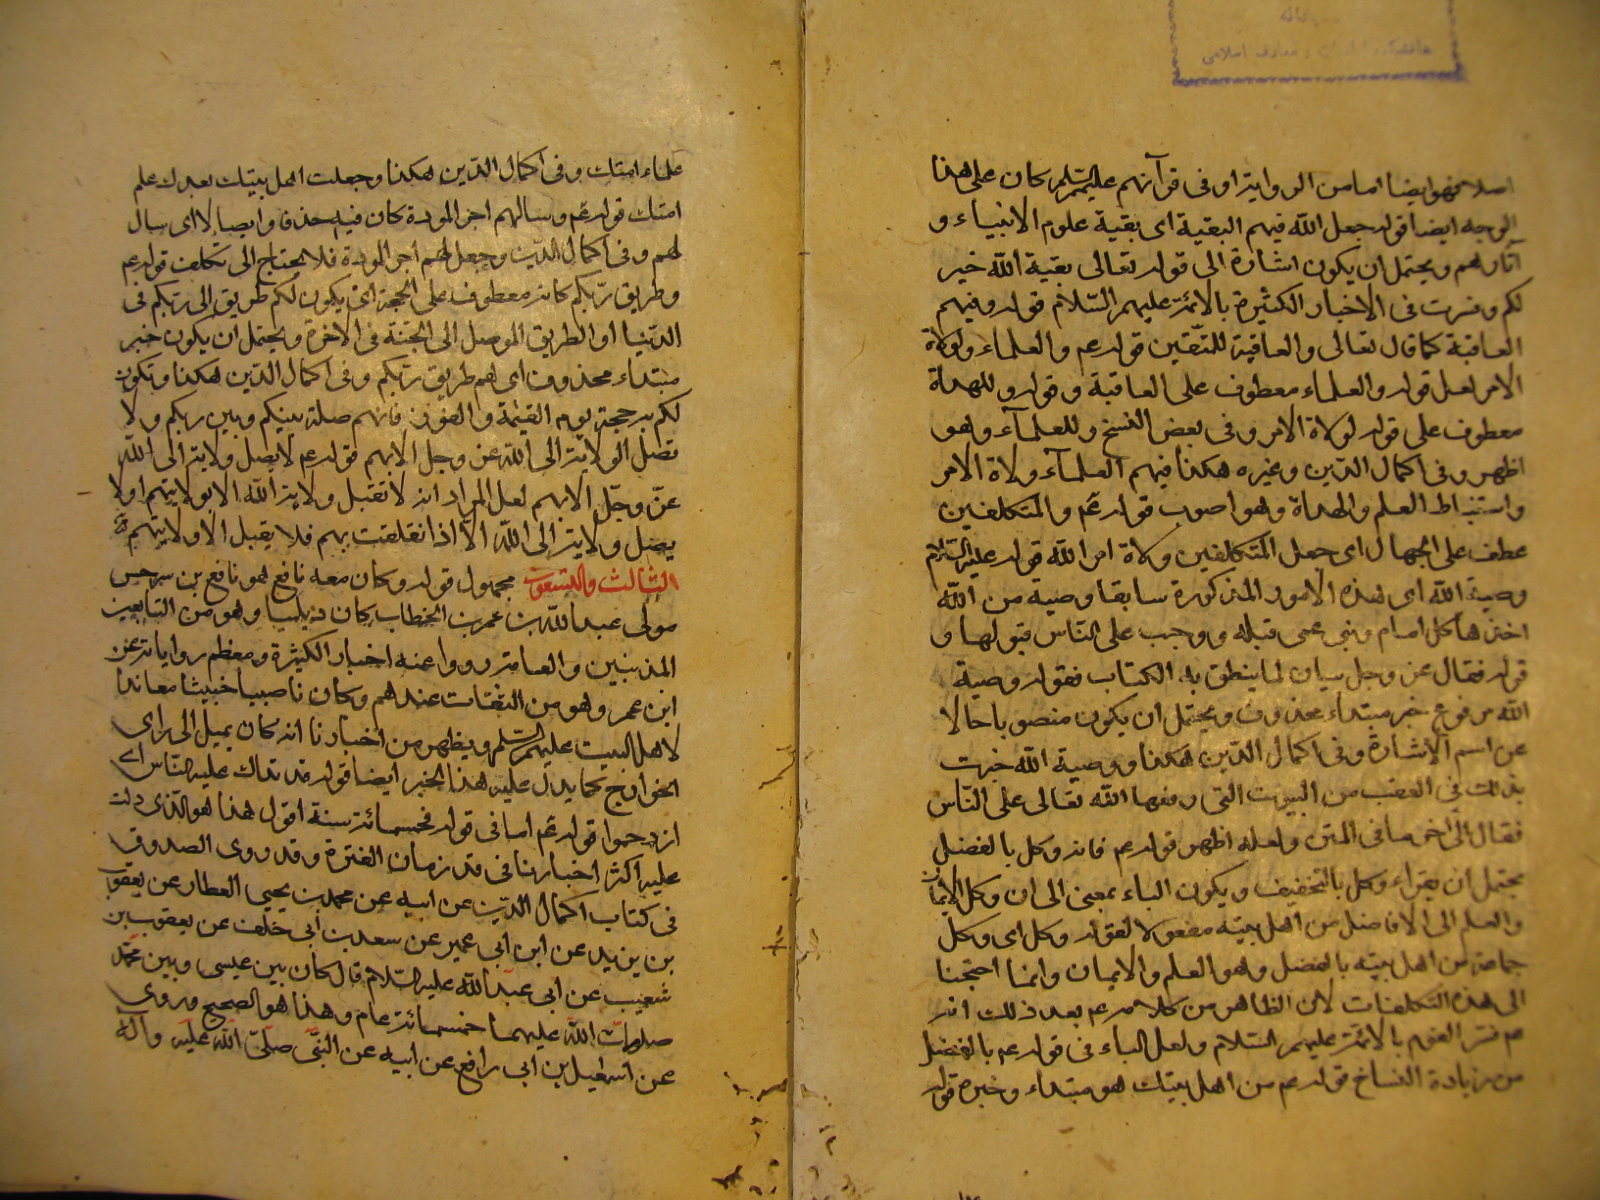 اصلا فهو ايضا اما من الرواية او فى قرآنهم عليهم السلم كان على هذا
الوجه ايضا قوله جعل الله فيهم البقية اى بقية علوم الانبياء و
آثارهم ويحتمل ان يكون اشارة الى قوله تعالى بقية الله خير
لكم وفسرت فى الاخبار الكثيرة بالائمة عليهم السلام قوله وفيهم
العاقبة كما قال تعالى والعاقبة للمتقين قوله عم والعلماء ولولاة
الامر لعل قوله والعلماء معطوف على العاقبة و قوله وللهداة
معطوف على قوله لولاة الامر وفى بعض النسخ وللعلمآء وهو
اظهر وفى اكمال الدين وغيره هكذا فيهم العلمآء ولاة الامر
واستنباط العلم والهداة وهو اصوب قوله عم والمتكلفين
عطف على الجهال اى جعل المتكلفين ولاة امر الله قوله عليه السلام
وصية الله اى هذه الامور المذكورة سابقا وصية من الله
اخذها كل امام ونبى عمن قبله ووجب على الناس قبولها و
قوله فقال عز وجل بيان لما ينطق به الكتاب فقوله وصية
الله مرفوع خبر مبتداء محذوف ويحتمل ان يكون منصوبا حالا
عن اسم الاشارة وفى اكمال الدين هكذا ووصية الله خبرت
بذلك فى العقب من البيوت التى رفعها الله تعالى على الناس
فقال الى آخر ما فى المتن ولعله اظهر قوله عم فانه وكل بالفضل
يحتمل ان يقراء وكل بالتخفيف ويكون الباء بمعنى الى ان وكل الايمان
والعلم الى الافاضل من اهل بيته مفعولا لقوله وكل اى وكل
جماعة من اهل بيته بالفضل وهو العلم والايمان وانما احتجنا
الى هذه التكلفات لان الظاهر من كلامه عم بعد ذلك انه
عم فسر القوم بالائمة عليهم السلام ولعل الباء فى قوله عم بالفضل
من زيادة النساخ قوله عم من اهل بيتك هو مبتداء وخبره قوله
علماء امتك وفى اكمال الدين هكذا وجعلت اهل بيتك بعدك علم
امتك قوله عم وسالهم اجر المودة كان فيه حذفا وايصالا اى سال
لهم وفى اكمال الدين وجعل لهم اجر المودة فلا يحتاج الى تكلف قوله عم
وطريق ربكم كانه معطوف على الحجة اى يكون لكم طريق الى ربكم فى
الدنيا او الطريق الموصل الى الجنة فى الاخرة ويحتمل ان يكون خبر
مبتداء محذوف اى هم طريق ربكم وفى اكمال الدين هكذا وتكون
لكم به حجة يوم القيمة والفوز فانهم صلة بينكم وبين ربكم ولا
تصل الولاية الى الله عز وجل الا بهم قوله عم لا يصل ولاية الى الله
عز وجل الا بهم لعل المراد انه لا تقبل ولاية الله الا بولايتهم او لا
يصل ولاية الى الله الا اذا تعلقت بهم فلا يقبل الا ولايتهم
الثالث والتسعون مجهول قوله وكان معه نافع هو نافع بن سرجس
مولى عبد الله بن عمر بن الخطاب كان ديلميا وهو من التابعين
المدنيين والعامة رووا عنه اخبار الكثيرة ومعظم رواياته عن
ابن عمر وهو من الثقات عندهم وكان ناصبيا خبيثا معاندا
لاهل البيت عليهم السلم ويظهر من اخبارنا انه كان يميل الى راى
الخوارج كما يدل عليه هذا الخبر ايضا قوله قد تداك عليه الناس اى
ازدحموا قوله عم اما فى قوله فخمسمائة سنة اقول هذا هو الذى دلت
عليه اكثر اخبارنا فى قدر زمان الفترة وقد روى الصدوق
فى كتاب اكمال الدين عن ابيه عن محمد بن يحيى العطار عن يعقوب
بن يزيد عن ابن ابى عمير عن سعد بن ابى خلف عن يعقوب بن
شعيب عن ابى عبد الله عليه السلام قال كان بين عيسى وبين محمد
صلوات الله عليهما خمسمائة عام وهذا هو الصحيح وروى
عن اسمعيل بن ابى رافع عن ابيه عن النبى صلى الله عليه وآله